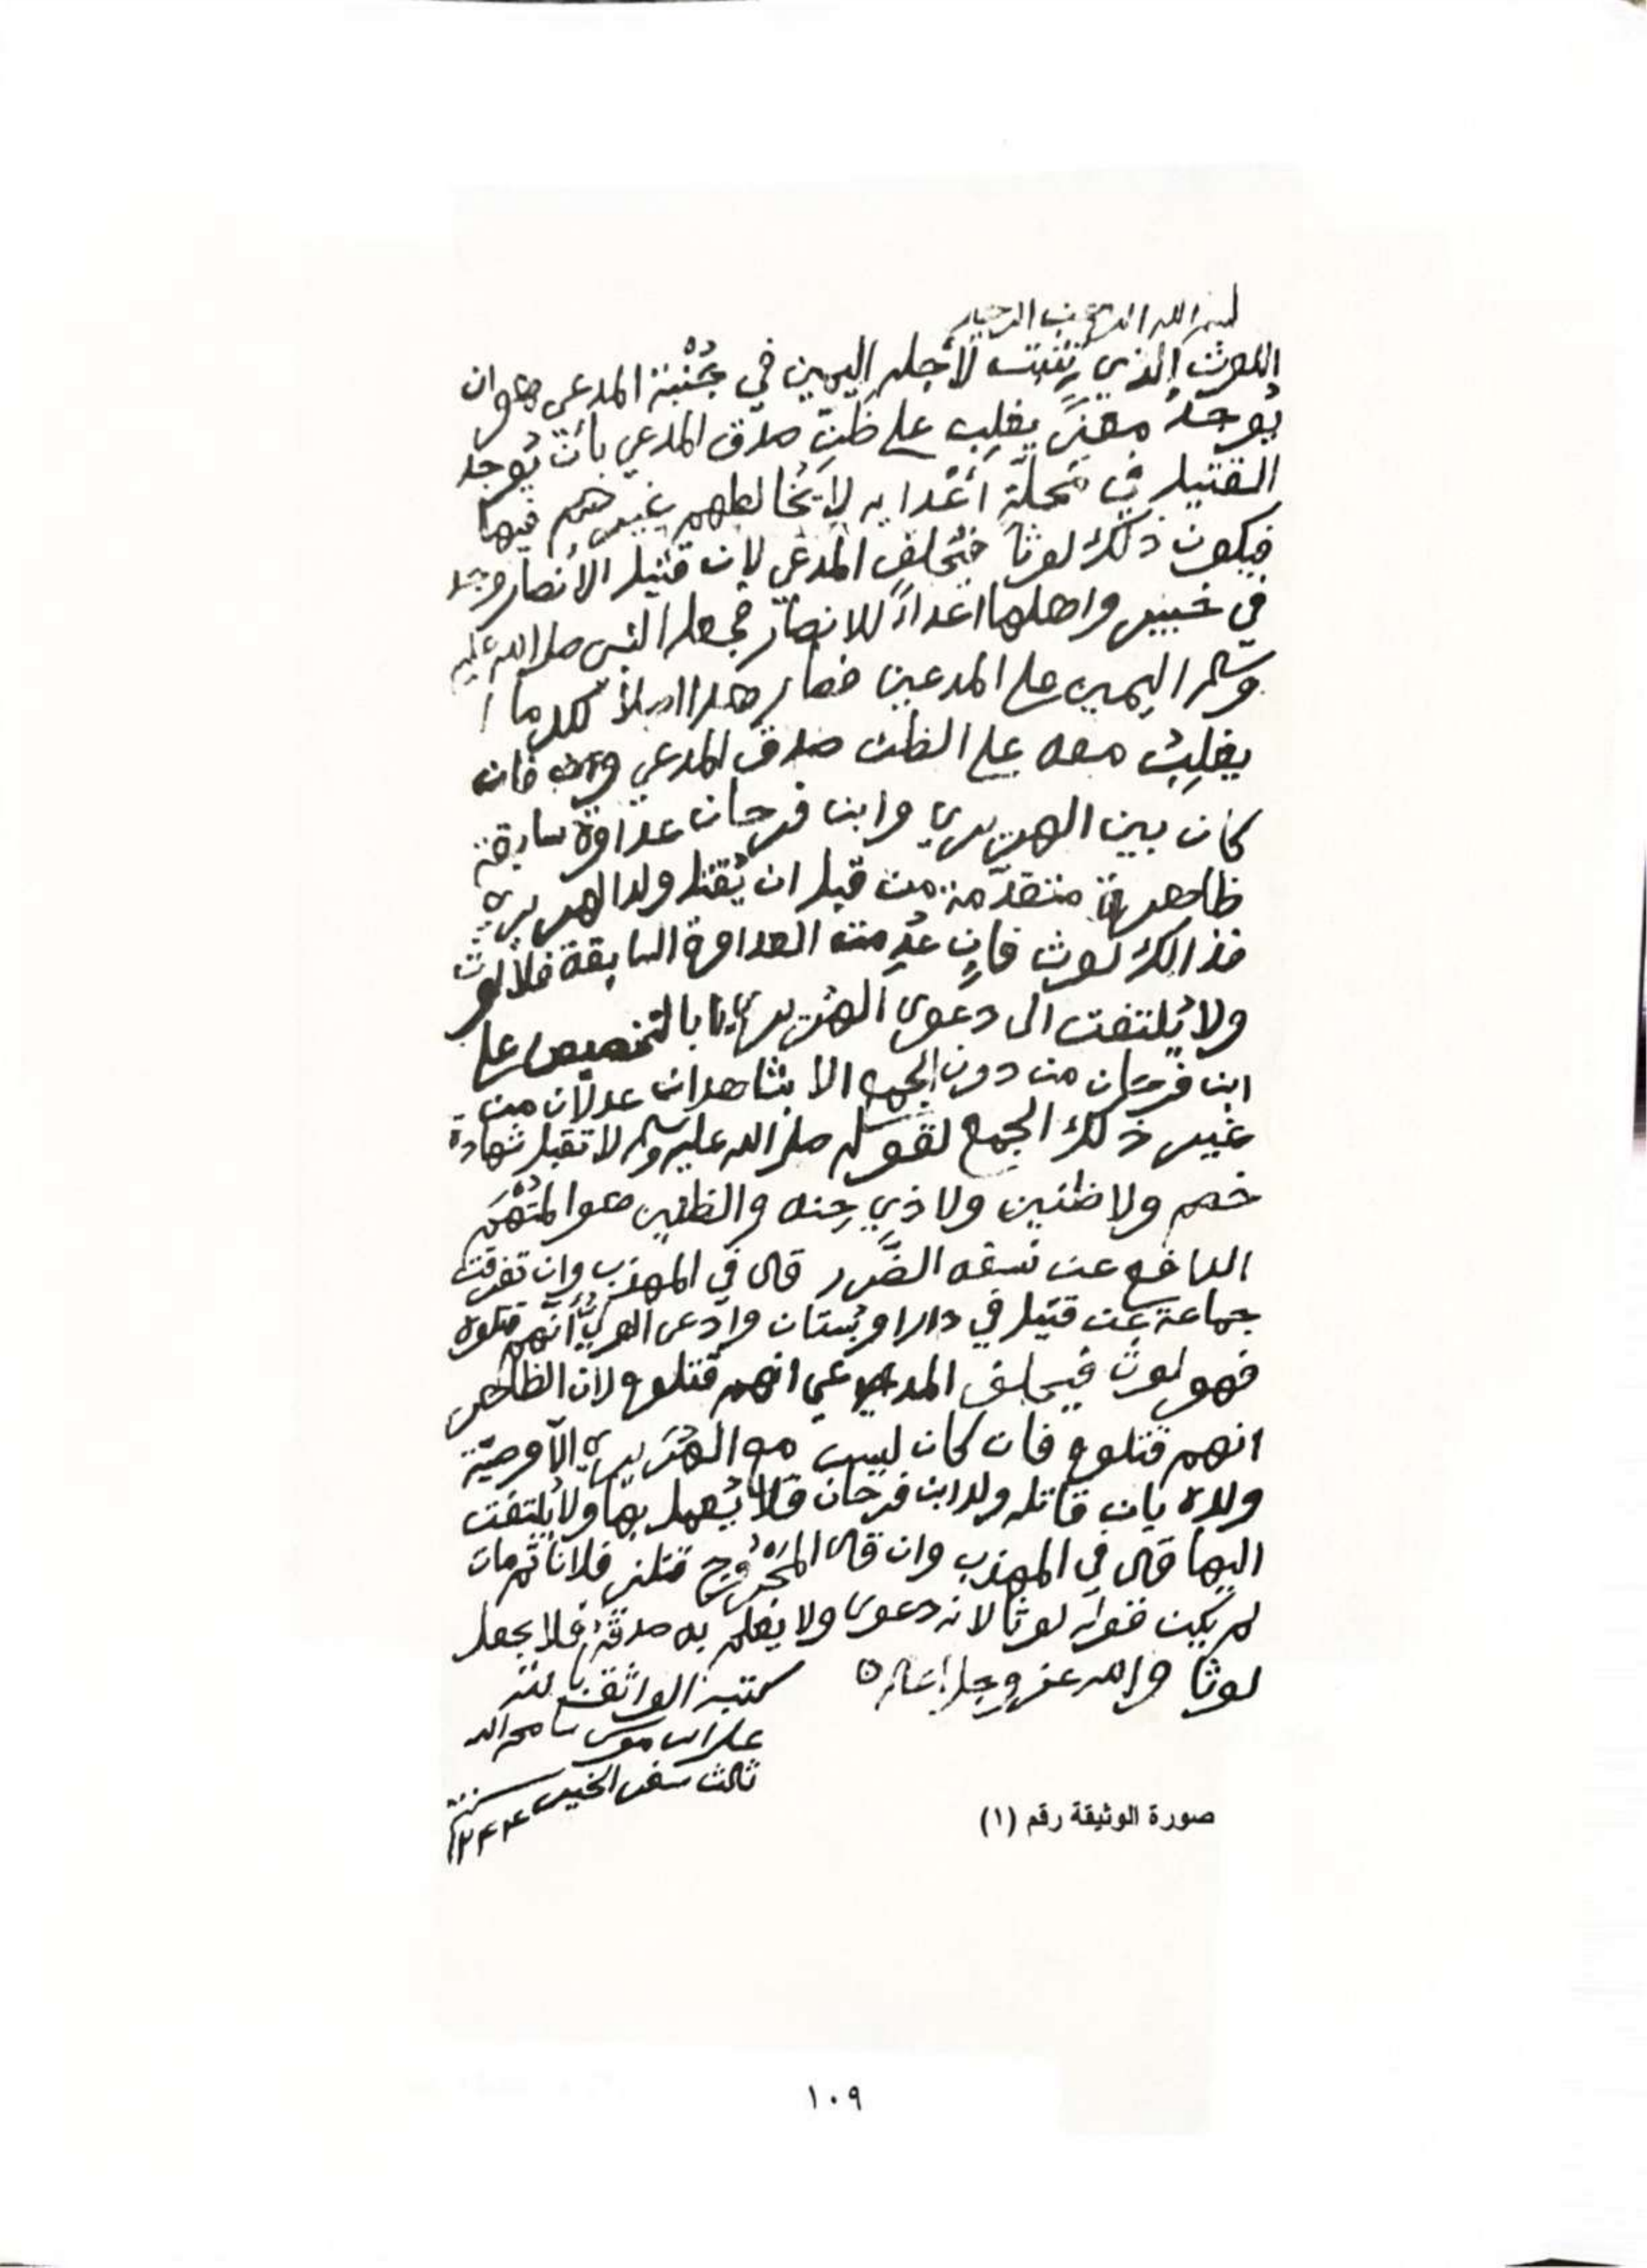 بسم الله الرحمن الرحيم
اللوث الذي تثبت لأجله اليمين في جُنْبَة المدعي هو ان
يُوجَدُ معنىً يغلِب على ظنّ صدق المدعي بأن يُوجد
القتيل في مَحلّة أعْدايه لا يُخالطهم غيرهم فيها
فيكون ذلك لوثاً فيَحلف المدعي لان قتيل الأنصار وجد
في خيبر واهلها اعداءً للانصار فجعل النبي صلى الله عليه
وسلم اليمين على المدعين فصار هذا اصلاً لكل ما
يغلِبُ معه على الظن صدق المدعي فان
كان بين الهزيري وابن فرحان عداوة سابقة
ظاهرة متقدّمة من قبل ان يُقتل ولد الهزيري
فذالك لوث فإن عُدِمت العداوة السابقة فلا لوث
ولا يُلتفت الى دعوى الهزيري بالتخصيص على
ابن فرحان من دون الجمع الا بشاهدان عدلان من
غير ذلك الجمع لقوله صلى الله عليه وسلم لا تقبل شهادة
خصم ولا ظنين ولا ذي حِنه والظنين هو المتهَم
الدافع عن نفسه الضَّرر قال في المهذب وان تفرقت
جماعة عن قتيل في دار او بُستان وادّعى الوليُّ أنّهم قتلوه
فهو لوث فيحلف المدعي انهم قتلوه لان الظاهر
انهم قتلوه فان كان ليس مع الهزيري الّا وصيّة
ولده بان قاتله ولد ابن فرحان فلا يُعمل بها ولا يُلتفت
اليها قال في المهذب وان قال المجْرُوح قتلني فلانٌ ثم مات
لم يكن قوله لوثاً لانه دعوى ولا يعلم به صدقهُ فلا يجعل
لوثا والله عز وجل اعلم
كتبه الواثق بالله
علي ابن موسى سامحه الله
ثالث سفر الخير سنة
١٢٤٤
صورة الوثيقة رقم (١)
١٠٩